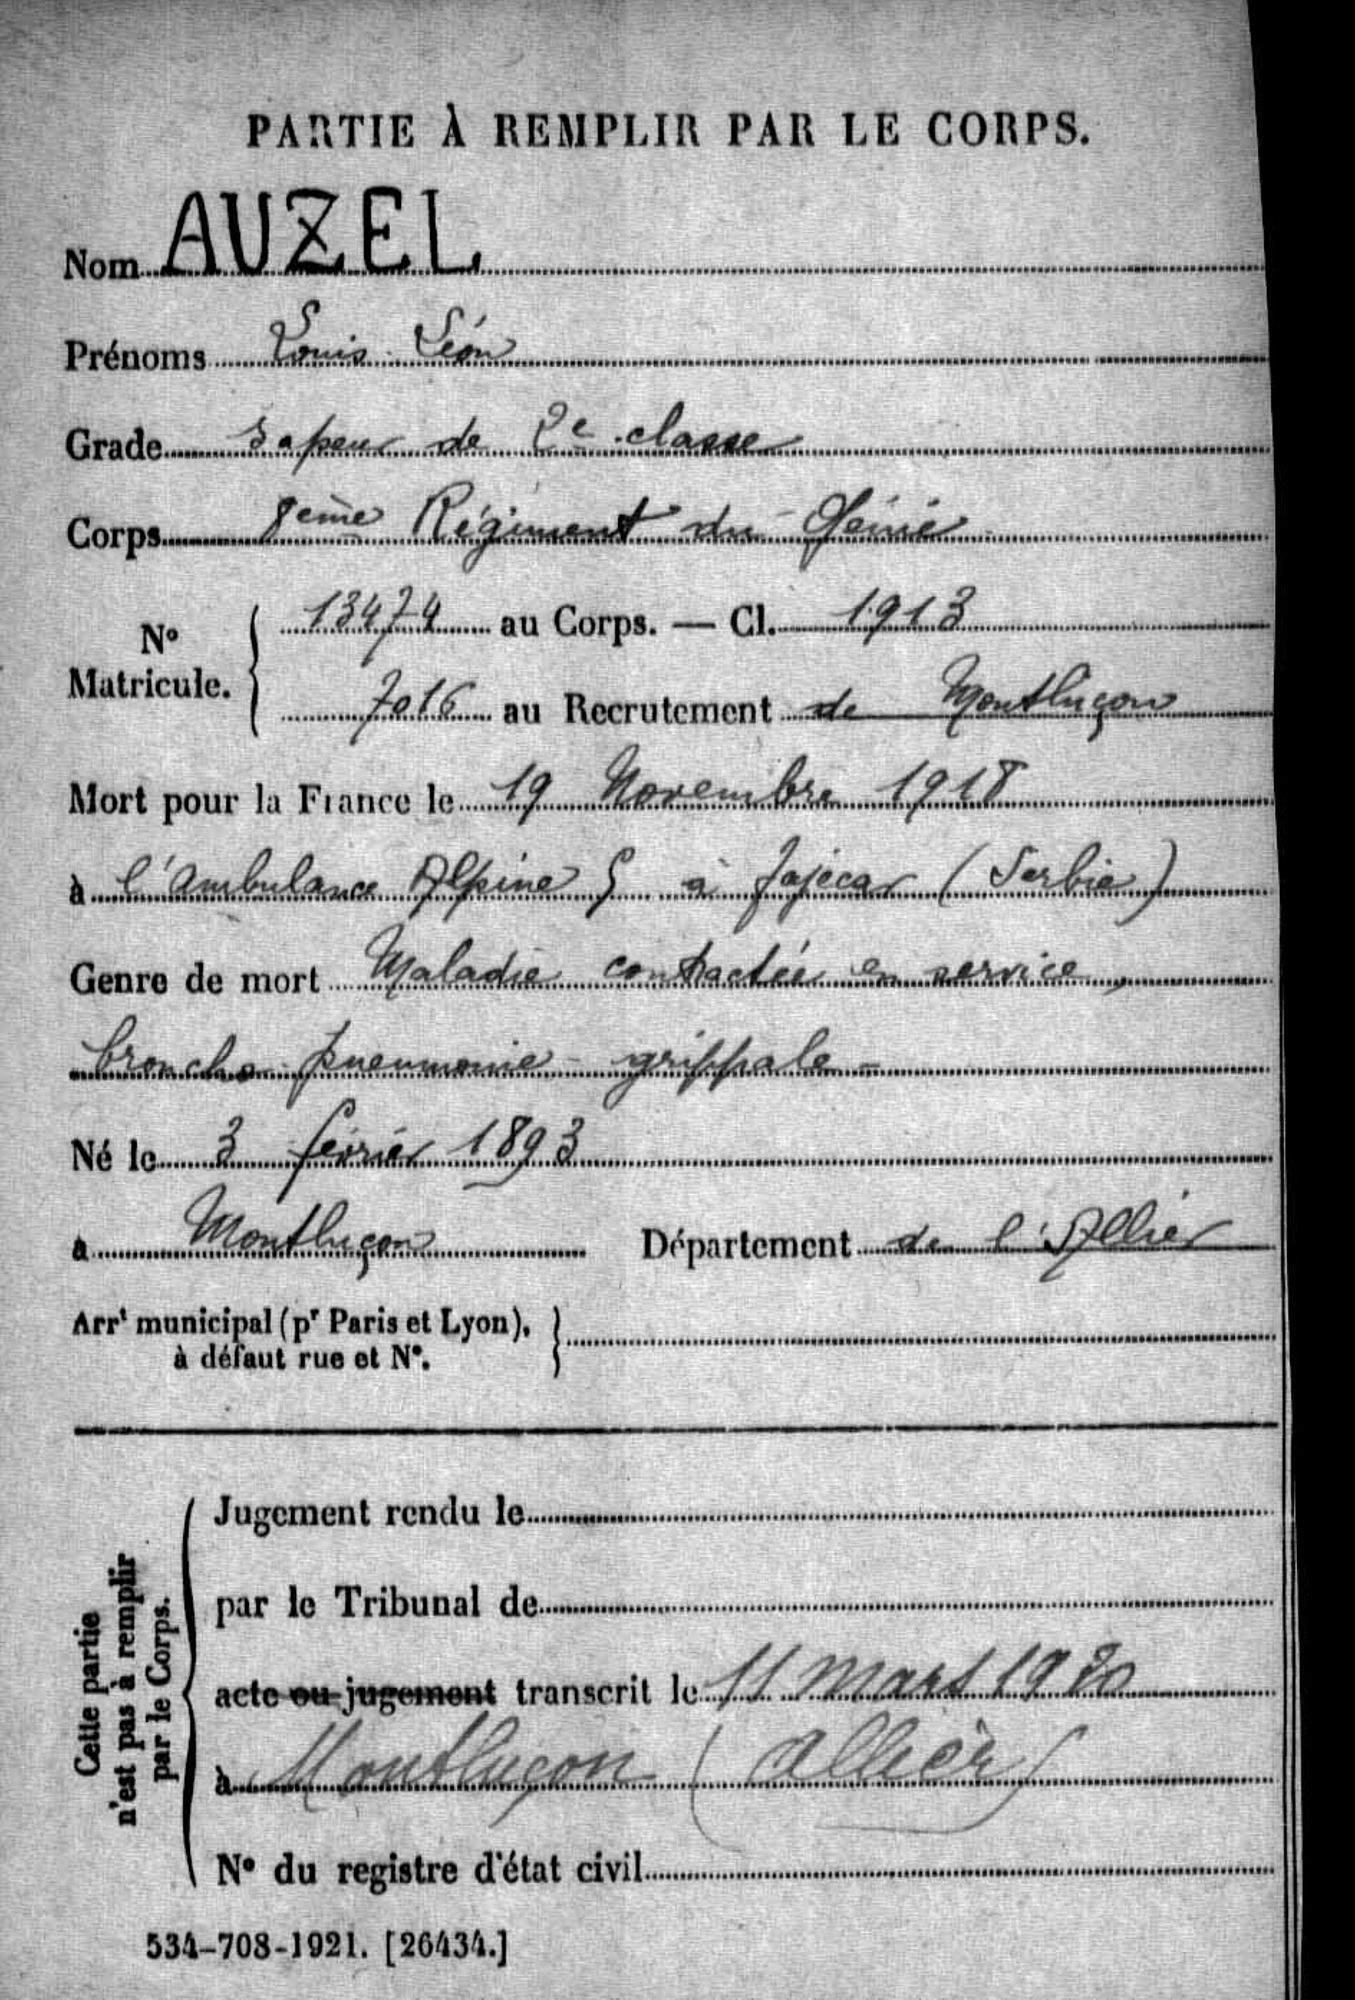 PARTIE À REMPLIR PAR LE CORPS.
Nom AUZEL
Prénoms Louis Léon
Grade sapeur de 2e classe
Corps 8ème Régiment du Génie
N° Matricule. 13474 au Corps. — Cl. 1913
7016 au Recrutement de Montluçon
Mort pour la France le 19 Novembre 1918
à l'Ambulance Alpine à Zajecar (Serbie)
Genre de mort Maladie contractée en service,
broncho-pneumonie grippale-
Né le 3 février 1893
à Montluçon Département de l'Allier
Arrt municipal (pr Paris et Lyon),
à défaut rue et N°.
Cette partie
n'est pas à remplir
par le Corps.
Jugement rendu le
par le Tribunal de
acte ou jugement transcrit le 11 mars 1920
à Montluçon (Allier)
N° du registre d'état civil
534-708-1921. [26434.]